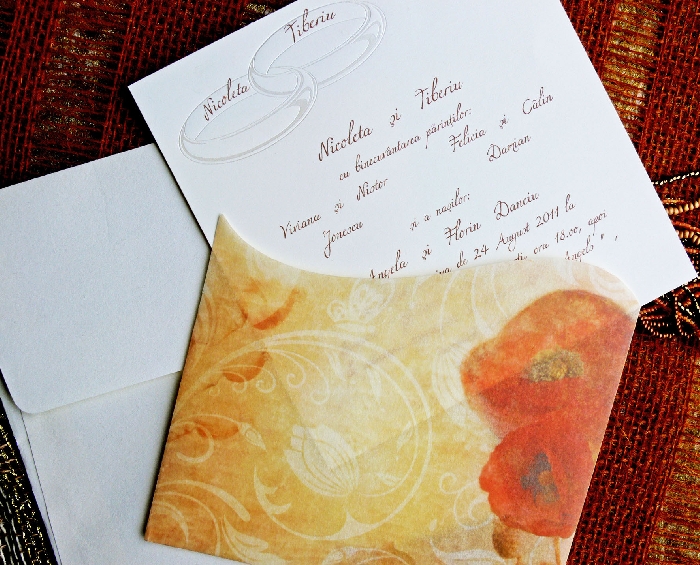 Nicoleta
Tiberiu
Nicoleta și Tiberiu
cu binecuvântarea părinților:
Viviana și Nistor
Jonescu
Felicia și Călin
Damian
și a nașilor:
Angela și Florin Danciu
de 24 August 2011 la
ora 18.00, apoi
Angelo"